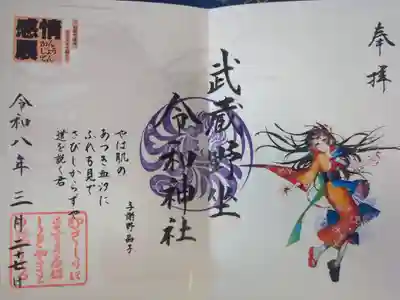 奉拝
武蔵野坐
令和神社
やは肌の
あつき血汐に
ふれも見で
さびしからずや
道を説く君
与謝野晶子
感情展
令和八年三月二十七日